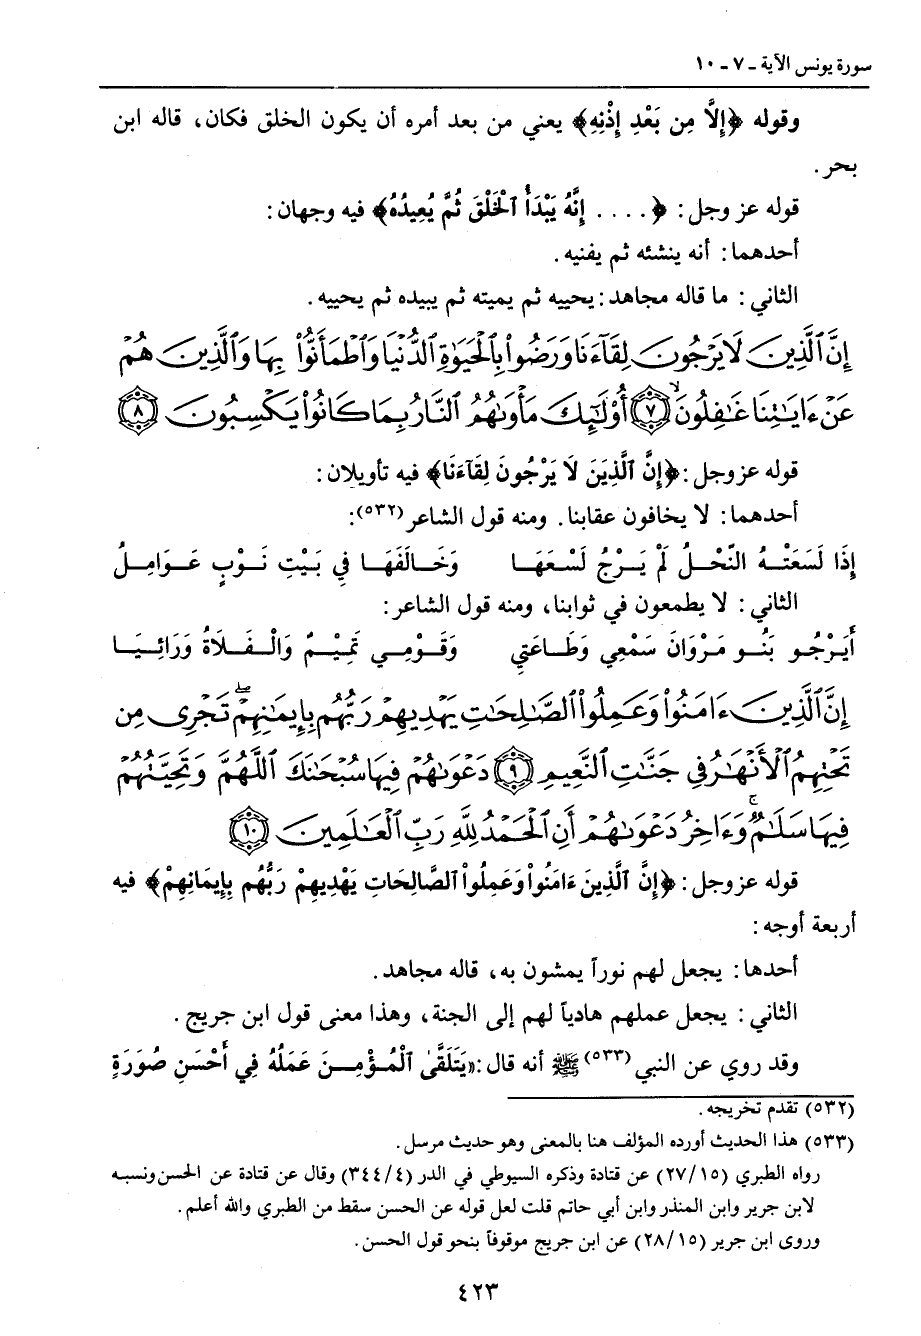 سورة يونس الآية ـ ٧ ـ ١٠
وقوله ﴿إِلَّا مِن بَعْدِ إِذْنِهِ﴾ يعني من بعد أمره أن يكون الخلق فكان، قاله ابن
بحر.
قوله عز وجل: ﴿.... إِنَّهُ يَبْدَأُ ٱلْخَلْقَ ثُمَّ يُعِيدُهُ﴾ فيه وجهان:
أحدهما: أنه ينشئه ثم يفنيه.
الثاني: ما قاله مجاهد: يحييه ثم يميته ثم يبيده ثم يحييه.
إِنَّ ٱلَّذِينَ لَا يَرْجُونَ لِقَآءَنَا وَرَضُوا۟ بِٱلْحَيَوٰةِ ٱلدُّنْيَا وَٱطْمَأَنُّوا۟ بِهَا وَٱلَّذِينَ هُمْ
عَنْ ءَايَٰتِنَا غَٰفِلُونَ ﴿٧﴾ أُو۟لَٰٓئِكَ مَأْوَىٰهُمُ ٱلنَّارُ بِمَا كَانُوا۟ يَكْسِبُونَ ﴿٨﴾
قوله عز وجل: ﴿إِنَّ ٱلَّذِينَ لَا يَرْجُونَ لِقَآءَنَا﴾ فيه تأويلان:
أحدهما: لا يخافون عقابنا. ومنه قول الشاعر(٥٣٢):
إِذَا لَسَعَتْهُ النَّحْلُ لَمْ يَرْجُ لَسْعَهَا وَخَالَفَهَا فِي بَيْتِ نَوْبٍ عَوَامِلُ
الثاني: لا يطمعون في ثوابنا، ومنه قول الشاعر:
أَيَرْجُو بَنُو مَرْوَانَ سَمْعِي وَطَاعَتِي وَقَوْمِي تَمِيْمٌ وَالْفَلَاةُ وَرَائِيَا
إِنَّ ٱلَّذِينَ ءَامَنُوا۟ وَعَمِلُوا۟ ٱلصَّٰلِحَٰتِ يَهْدِيهِمْ رَبُّهُم بِإِيمَٰنِهِمْ ۖ تَجْرِى مِن
تَحْتِهِمُ ٱلْأَنْهَٰرُ فِى جَنَّٰتِ ٱلنَّعِيمِ ﴿٩﴾ دَعْوَىٰهُمْ فِيهَا سُبْحَٰنَكَ ٱللَّهُمَّ وَتَحِيَّتُهُمْ
فِيهَا سَلَٰمٌ ۚ وَءَاخِرُ دَعْوَىٰهُمْ أَنِ ٱلْحَمْدُ لِلَّهِ رَبِّ ٱلْعَٰلَمِينَ ﴿١٠﴾
قوله عز وجل: ﴿إِنَّ ٱلَّذِينَ ءَامَنُوا۟ وَعَمِلُوا۟ ٱلصَّالِحَاتِ يَهْدِيهِمْ رَبُّهُم بِإِيمَانِهِمْ﴾ فيه
أربعة أوجه:
أحدها: يجعل لهم نوراً يمشون به، قاله مجاهد.
الثاني: يجعل عملهم هادياً لهم إلى الجنة، وهذا معنى قول ابن جريج.
وقد روي عن النبي(٥٣٣) ﷺ أنه قال: «يَتَلَقَّىٰ ٱلْمُؤْمِنَ عَمَلُهُ فِي أَحْسَنِ صُورَةٍ
(٥٣٢) تقدم تخريجه.
(٥٣٣) هذا الحديث أورده المؤلف هنا بالمعنى وهو حديث مرسل.
رواه الطبري (٢٧/١٥) عن قتادة وذكره السيوطي في الدر (٣٤٤/٤) وقال عن قتادة عن الحسن ونسبه
لابن جرير وابن المنذر وابن أبي حاتم قلت لعل قوله عن الحسن سقط من الطبري والله أعلم.
وروى ابن جرير (٢٨/١٥) عن ابن جريج موقوفاً بنحو قول الحسن.
٤٢٣